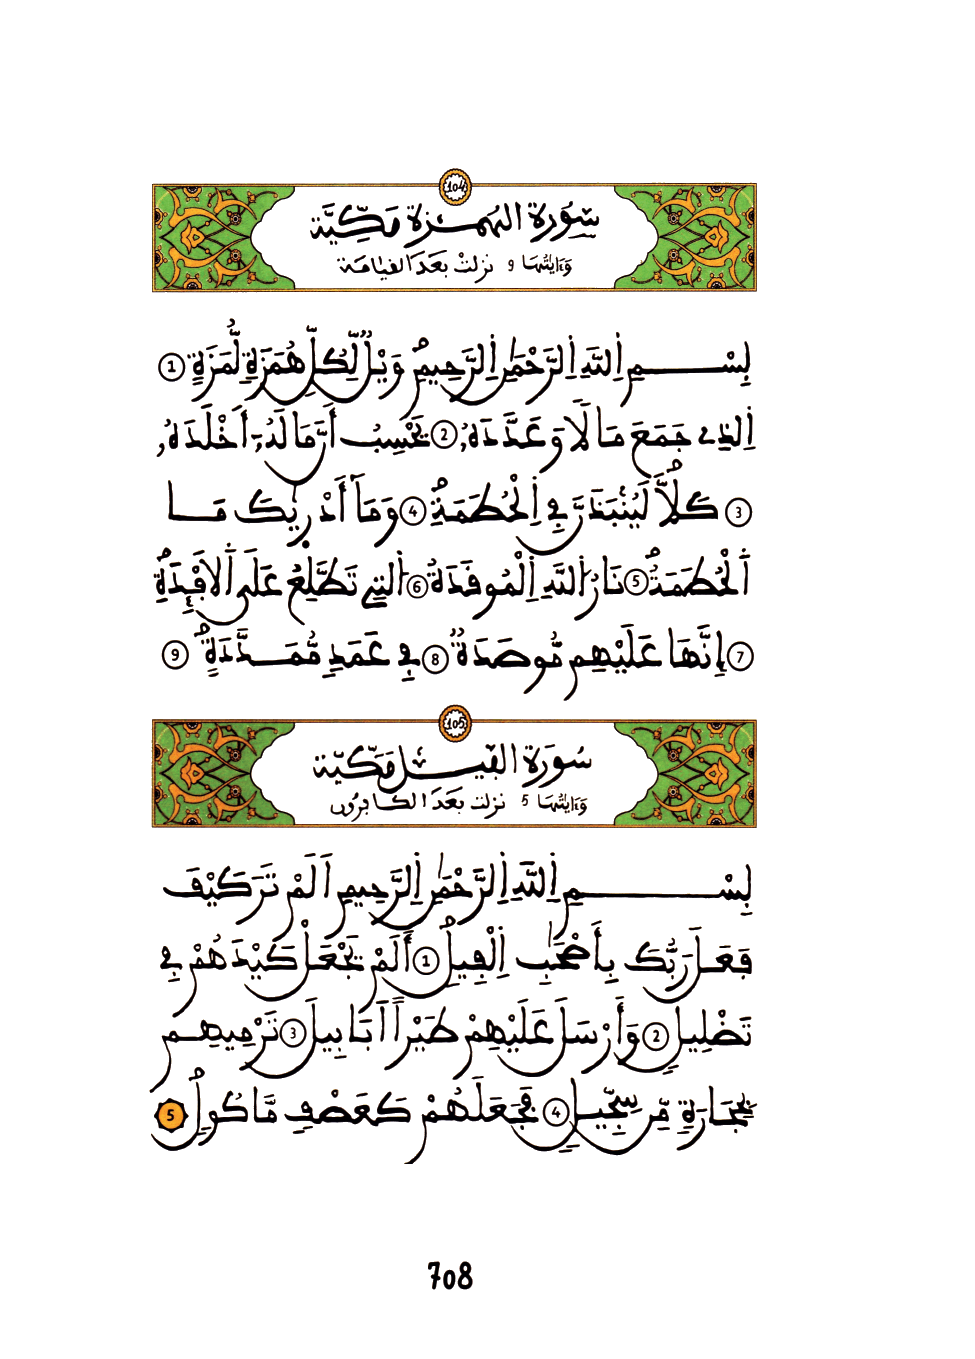 104
سُورَةُ الهُمَزَةِ مَكِّيَّة
وَءَايَتُهَا 9 نزلت بَعْدَ القيامة
بِسْمِ اِللَّهِ اِلرَّحْمَٰنِ اِلرَّحِيمِ وَيْلٞ لِّكُلِّ هُمَزَةٖ لُّمَزَةٍ 1
اِلذِے جَمَعَ مَالٗا وَعَدَّدَهُۥ 2 يَحْسِبُ أَنَّ مَالَهُۥٓ أَخْلَدَهُۥ
3 كَلَّا لَيُنۢبَذَنَّ فِے اِلْحُطَمَةِ 4 وَمَآ أَدْر۪يٰكَ مَا
اَ۬لْحُطَمَةُ 5 نَارُ اُ۬للَّهِ اِ۬لْمُوقَدَةُ 6 اُ۬لتِے تَطَّلِعُ عَلَى اَ۬لَافْـِٕدَةِ
7 إِنَّهَا عَلَيْهِم مُّوصَدَةٞ 8 فِے عَمَدٖ مُّمَدَّدَةٍ 9
105
سُورَةُ الفِيلِ مَكِّيَّة
وَءَايَتُهَا 5 نزلت بَعْدَ الكافرون
بِسْمِ اِللَّهِ اِلرَّحْمَٰنِ اِلرَّحِيمِ اَلَمْ تَرَ كَيْفَ
فَعَلَ رَبُّكَ بِأَصْحَٰبِ اِلْفِيلِ 1 أَلَمْ يَجْعَلْ كَيْدَهُمْ فِے
تَضْلِيلٖ 2 وَأَرْسَلَ عَلَيْهِمْ طَيْراً اَبَابِيلَ 3 تَرْمِيهِم
بِحِجَارَةٖ مِّن سِجِّيلٖ 4 فَجَعَلَهُمْ كَعَصْفٖ مَّاكُولٍ 5
708